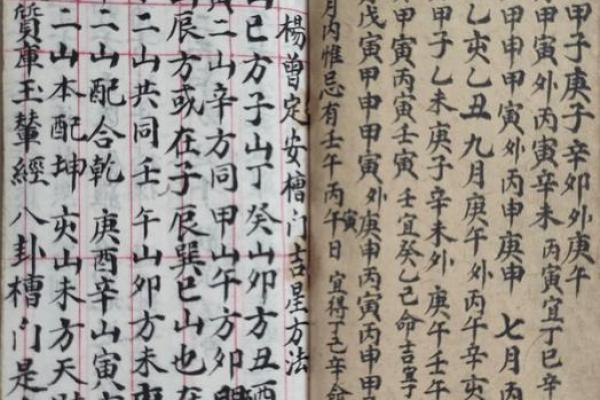 甲子庚子辛卯外庚午
甲寅外丙寅辛未 丙寅宜丁巳辛
甲申甲寅外丙申庚申 七月丙
乙亥乙丑九月庚午外丙午辛亥
甲子乙未庚子辛未外庚午壬午
甲寅丙寅壬寅 壬宜癸乙己命吉宜丁
戊寅甲申甲寅外庚申丙寅丙申甲
月内惟忌有壬午丙午日 宜得丁己辛命
楊曾定安槽门吉星方法
巳方子山丁癸山卯方丑酉
二山辛方同甲山午方卯
山辰方或在子辰巽巳山也在
二山共同壬午山卯方未
二山配合乾 庚酉辛山寅
二山本配坤 亥山未方天
質庫玉輦經 八卦槽门是